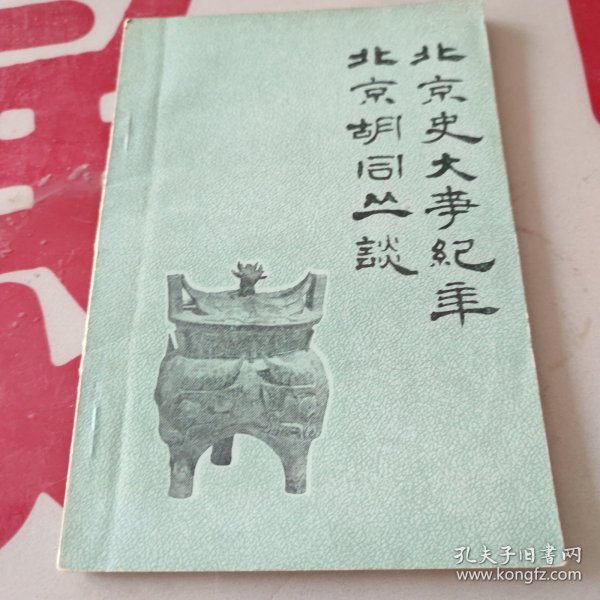 北京史大事纪年
北京胡同丛談
孔夫子旧书网
www.kongfz.com